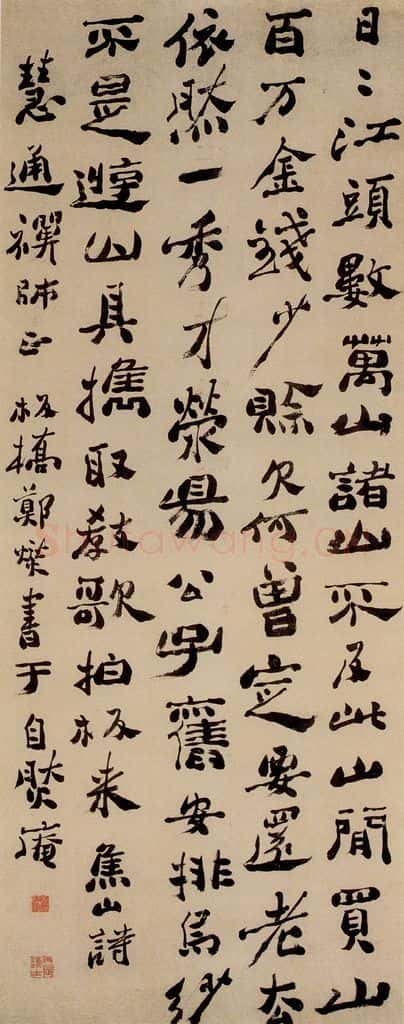 日〻江頭數萬山諸山不及此山閒買山
百万金錢少賒欠何曾定要還老去
依然一秀才滎陽公子舊安排烏紗
不是遊山具攜取教歌拍板来焦山詩
慧通禪師正板橋鄭燮書于自然庵